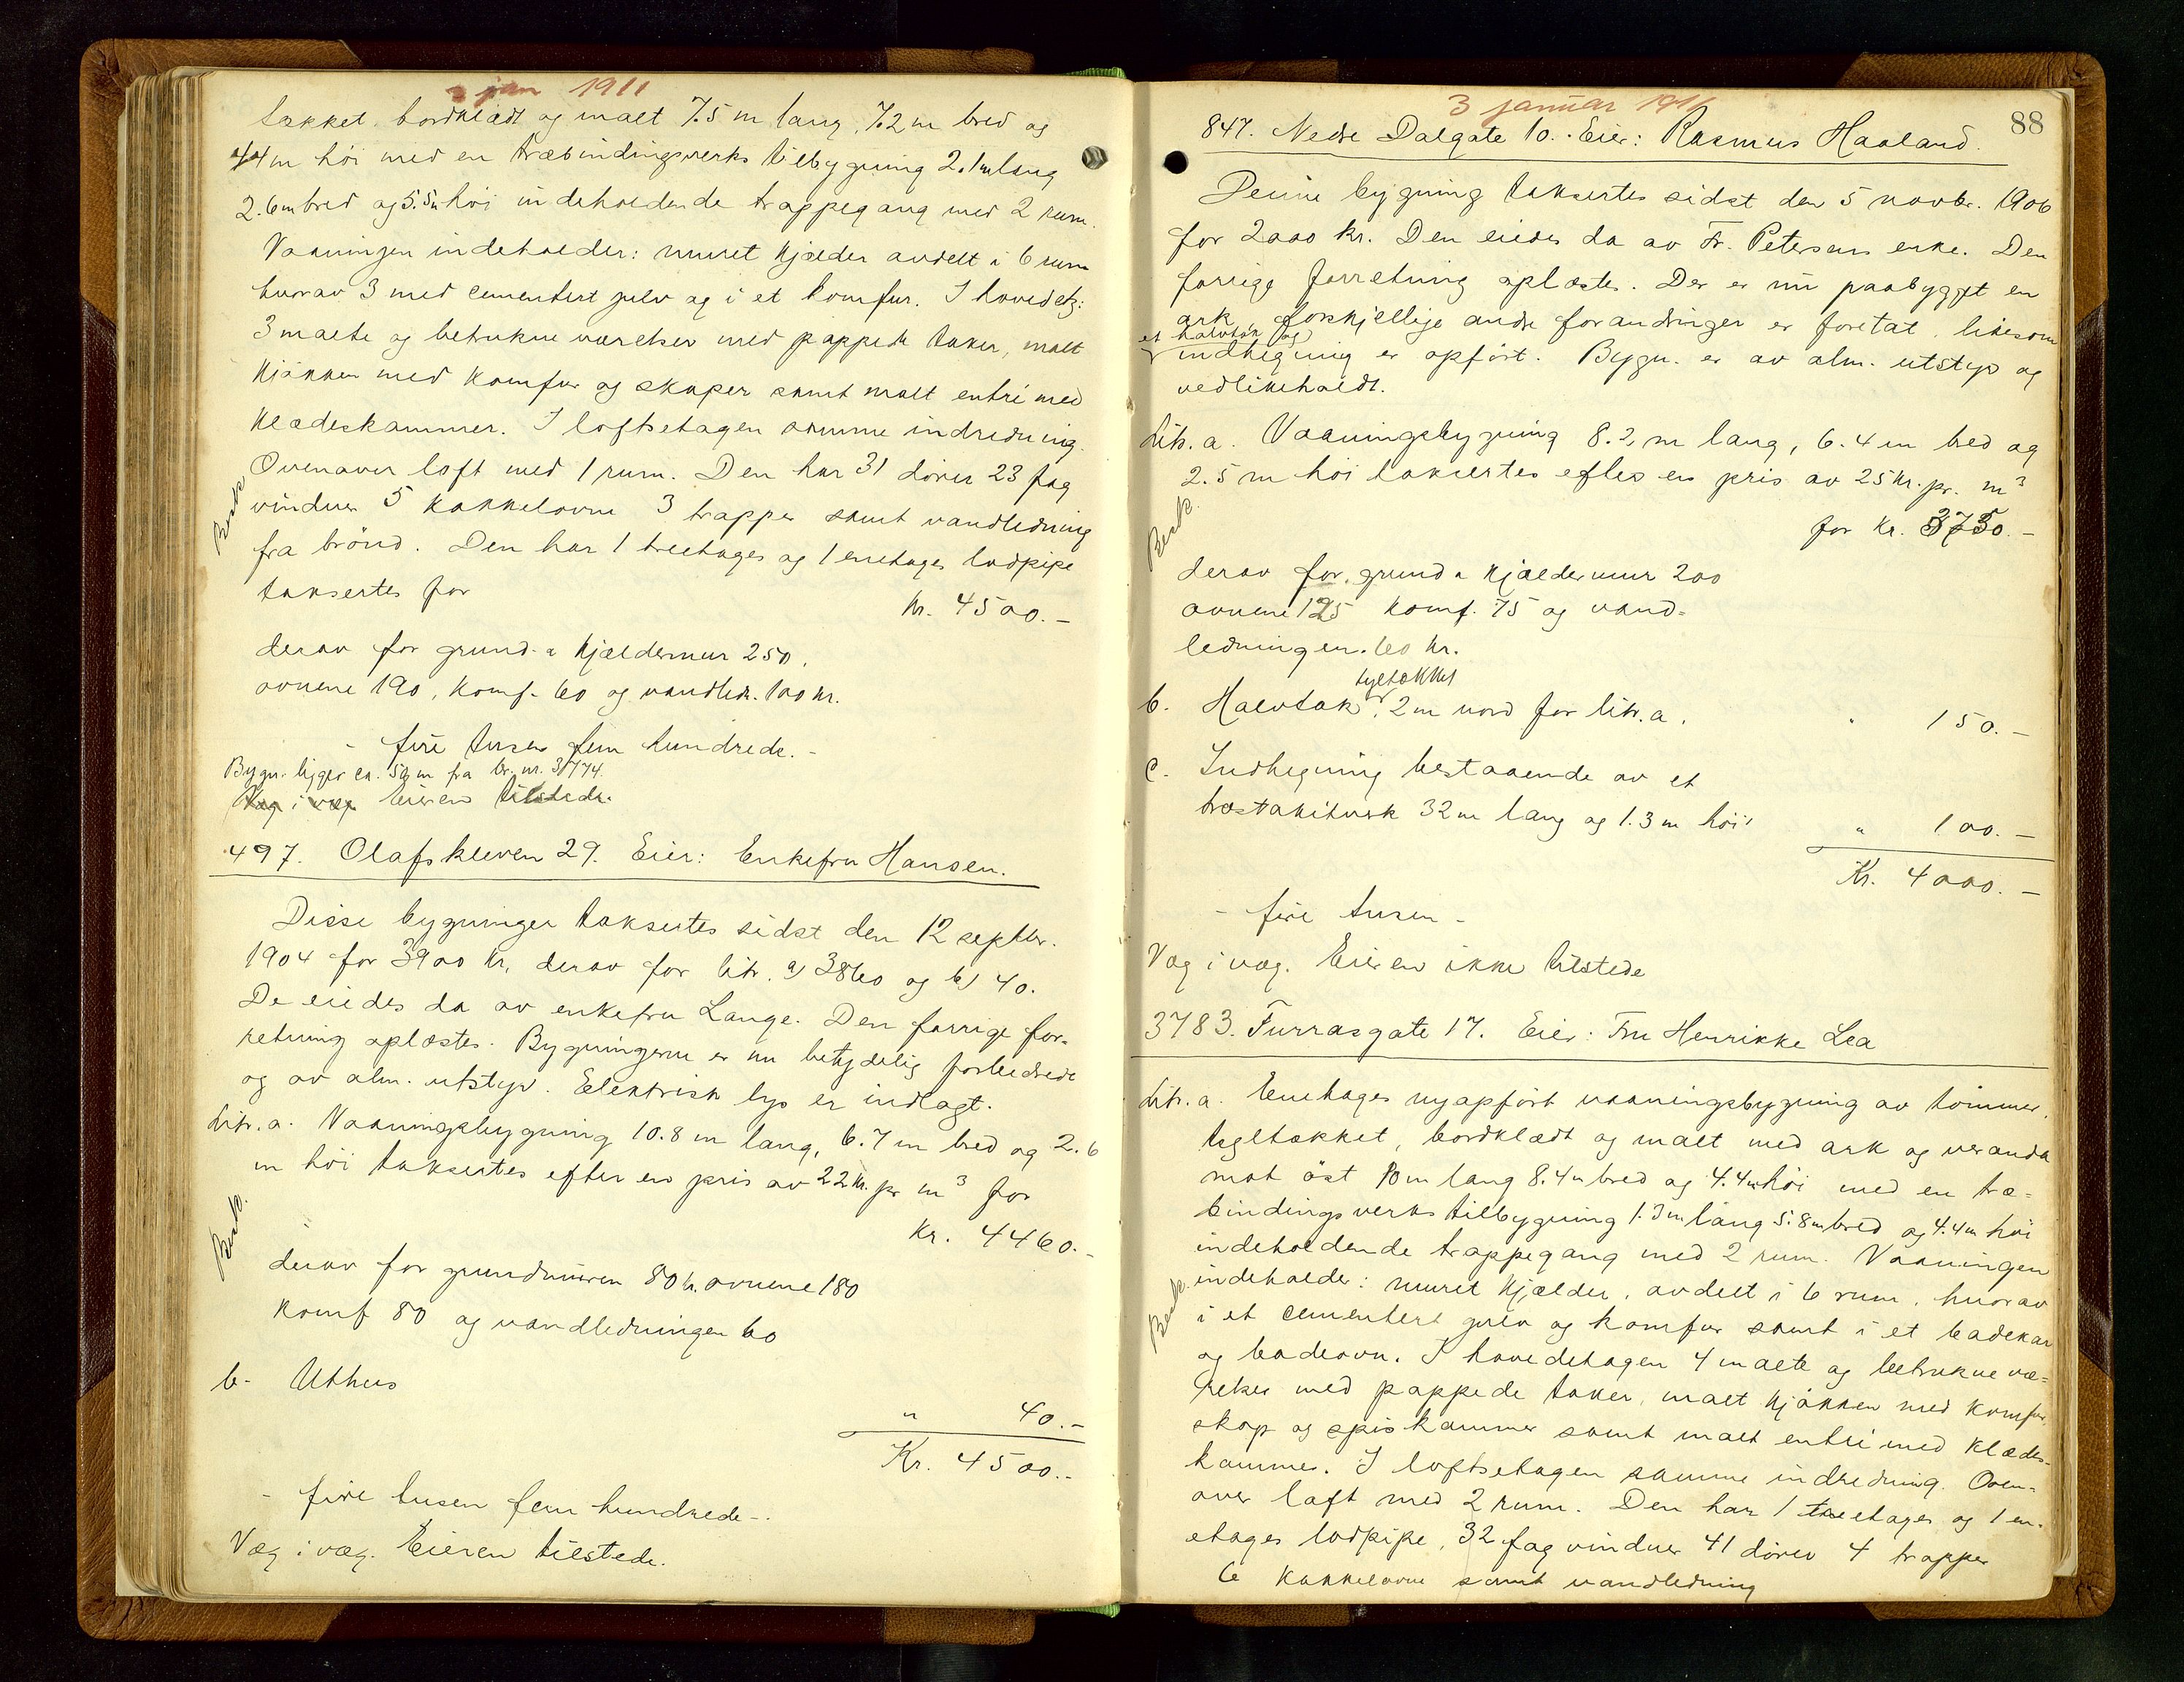 3 jan 1911
tækket, bordklædt og malt 7.5 m lang, 7.2 m bred og
4.4 m höi med en træbindingsverks tilbygning 2.1 m lang
2.6 m bred og 5.5 m höi indeholdende trappegang med 2 rum.
Vaaningen indeholder: muret kjælder avdelt i 6 rum
hvorav 3 med cementert gulv og i et komfur. I hovedetg:
3 malte og betrukne værelser med pappede taker, malt
kjökken med komfur og skaper samt malt entré med
klædeskammer. I loftsetagen samme indredning.
Ovenover loft med 1 rum. Den har 31 dörer 23 fag
vinduer 5 kakkelovne 3 trapper samt vandledning
fra brönd. Den har 1 treetages og 1 enetages lodpipe
Besk.
taksertes for kr. 4500.-
derav for grund- & kjældermur 250,
ovnene 190, komf. 60 og vandledn. 100 kr.
- fire tusen fem hundrede. -
Bygn. ligger ca. 50 m fra br. nr. 3774.
Væg i væg Eieren tilstede.
497. Olafskleven 29. Eier: Enkefru Hansen.
Disse bygninger taksertes sidst den 12 septbr.
1904 for 3900 kr, derav for litr. a) 3860 og b) 40.
De eiedes da av enkefru Lange. Den forrige for-
retning oplæstes. Bygningerne er nu betydelig forbedrede
og av alm. utstyr. Elektrisk lys er indlagt.
Litr. a. Vaaningsbygning 10.8 m lang, 6.7 m bred og 2.6
m höi taksertes efter en pris av 22 kr. pr m³ for
Kr. 4460.-
Besk.
derav for grundmuren 80 kr. ovnene 180
komf 80 og vandledningen 60
b- Uthus
" 40.-
Kr. 4500.-
- fire tusen fem hundrede -.
Væg i væg. Eieren tilstede.
88
3 januar 1911
847. Nedre Dalgate 10. Eier: Rasmus Haaland.
Denne bygning taksertes sidst den 5 novbr. 1906
for 2000 kr. Den eiedes da av Fr. Petersens enke. Den
forrige forretning oplæstes. Der er nu paabygget en
ark, forskjellige andre forandringer er foretat, likesom
et halvtak og
indhegning er opfört. Bygn. er av alm. utstyr og
vedlikeholdt.
Litr. a. Vaaningsbygning 8.2 m lang, 6.4 m bred og
2.5 m höi taksertes efter en pris av 25 kr. pr. m³
for kr. 3750.-
Besk.
derav for grund & kjældermur 200
ovnene 125 komf. 75 og vand-
ledningen 60 kr.
tegltækket
b. Halvtak, 2 m nord for litr. a. " 150.-
c. Indhegning bestaaende av et
træstakitverk 32 m lang og 1.3 m höi " 100.-
Kr. 4000.-
- fire tusen -
Væg i væg. Eieren ikke tilstede
3783. Furrasgate 17. Eier: Fru Henrikke Lea
Litr. a. Enetages nyopfört vaaningsbygning av tömmer,
tegltækket, bordklædt og malt med ark og veranda
mot öst 10 m lang 8.4 m bred og 4.4 m höi med en træ-
bindingsverks tilbygning 1.3 m lang 5.8 m bred og 4.4 m höi
indeholdende trappegang med 2 rum. Vaaningen
indeholder: muret kjælder, avdelt i 6 rum, hvorav
Besk.
i et cementert gulv og komfur samt i et badekar
og badeovn. I hovedetagen 4 malte og betrukne væ-
relser med pappede taker, malt kjökken med komfur,
skap og spiskammer samt malt entré med klædes-
kammer. I loftsetagen samme indredning. Oven-
over loft med 2 rum. Den har 1 treetages og 1 en-
etages lodpipe, 32 fag vinduer 41 dörer 4 trapper
6 kakkelovne samt vandledning